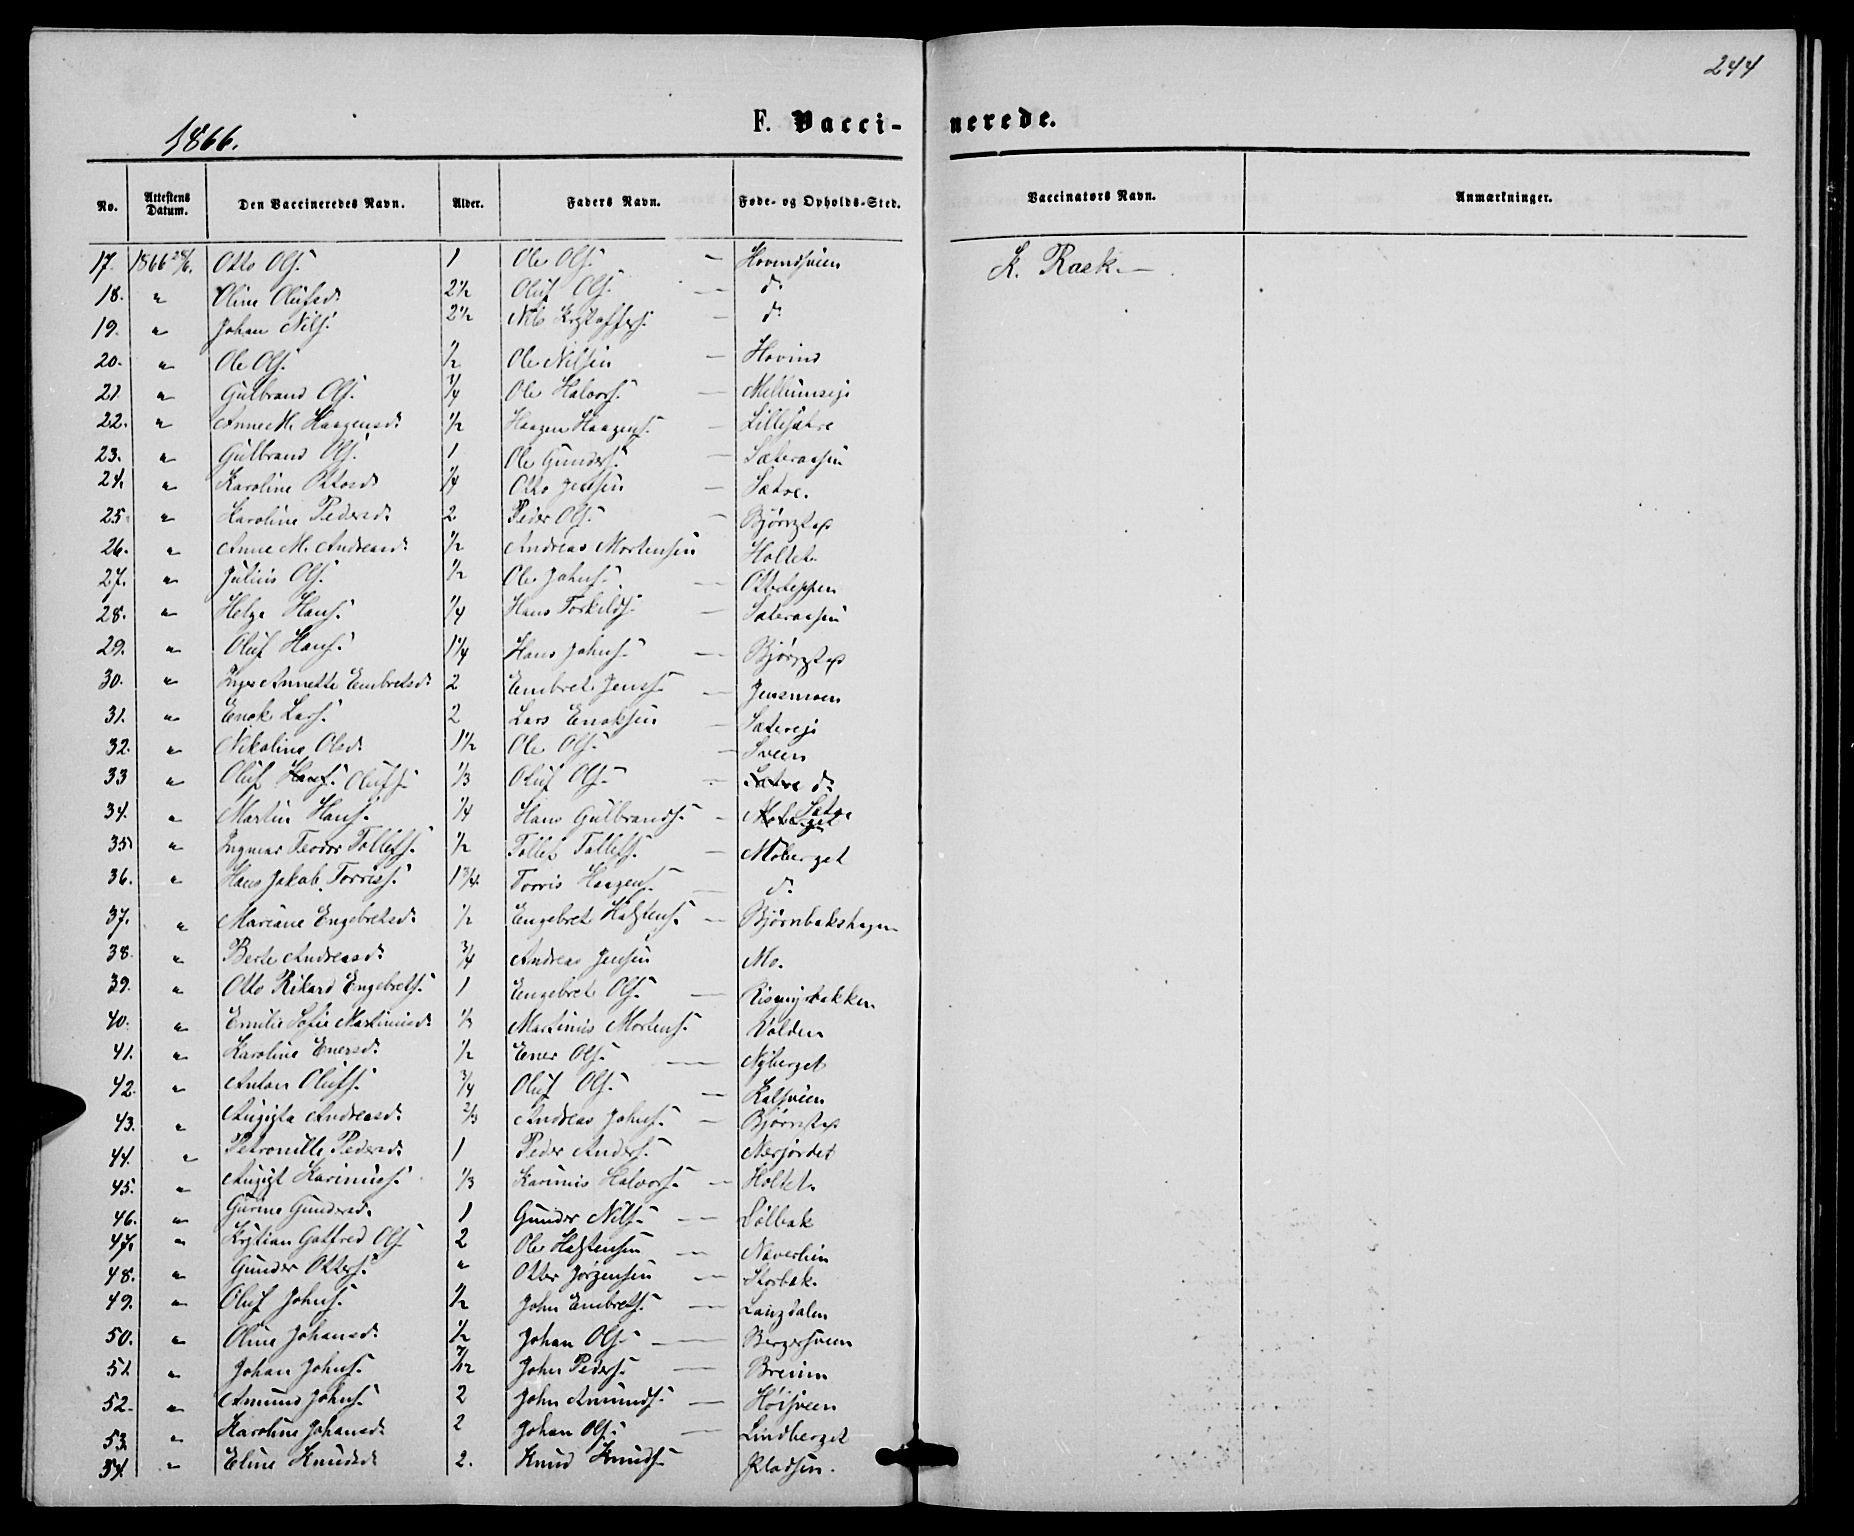 244
1866.
F. Vaccinerede.
No. Attestens Datum. Den Vaccineredes Navn. Alder. Faders Navn. Føde- og Opholds-Sted. Vaccinators Navn. Anmærkninger.
17. 1866 28/6. Otto Ols. 1 Ole Ols. — Hovindsveen K. Rask. —
18. " Oline Olufsd. 2 1/2 Oluf Ols. — do
19. " Johan Nils. 2 1/2 Nils Kristoffers. — do
20. " Ole Ols. 1/2 Ole Nilsen — Hovind
21 " Gulbrand Ols. 3/4 Ole Halvors. — Mellumseje
22. " Anne M. Haagensd. 1/2 Haagen Haagens. — Lillesætre
23. " Gulbrand Ols. 1 Ole Gunders. — Sæteraasen
24. " Karoline Ottosd. 1/4 Otto Jensen — Sætre.
25. " Karoline Pedersd. 2. Peder Ols. —
26. " Anne M. Andreasd. 1/2 Andreas Mortensen Holtet.
27. " Julius Ols. 1/2 Ole Johns. —
28. " Helge Hans. 1/4 Hans Torkilds. — Sæteraasen
29. " Oluf Hans. 1 1/4 Hans Johns. —
30. " Inger Annette Embretsd. 2 Embret Jens. — Jensmoen
31. " Enok Lars. 2 Lars Enoksen — Sætereje
32. " Nikoline Olsd. 1 1/2 Ole Ols. — Sveen
33 " Oluf Hans. Olufs. 1/3 Oluf Ols. — Sætre do
34. " Martin Hans. 1/4 Hans Gulbrands. — Moberget Sætre
35 " Ingmar Teodor Tollefs. 1/2 Tollef Tollefs. — Moberget
36. " Hans Jakob Torris. 1 3/4. Torris Haagens. — do
37. " Mariane Engebretsd. 1/2 Engebret Halstens. — Bjørnbakshagen
38. " Berte Andreasd. 3/4 Andreas Jensen Mo.
39. " Otto Rikard Engebrets. 1 Engebret Ols. —
40. " Emilie Sofie Martinusd. 1/3 Martinus Mortens. Volden
41. " Karoline Enersd. 1/2 Ener Ols. — Nyberget
42. " Anton Olufs. 3/4 Oluf Ols. — Kalsveen
43. " Augusta Andreasd. 2/3 Andreas Johns. —
44. " Petronille Pedersd. 1 Peder Anders. Nerjordet
45. " August Karinius. 1/3 Karinius Halvors. — Holtet
46. " Gurine Gundersd. 1 Gunder Nils. — Sølbak
47. " Kristian Gotfred Ols. 2 Ole Halstensen — Næverlien
48. " Gunder Otters. " Otter Jørgensen — Storbak.
49. " Oluf Johns. 1/2 John Embrets. — Langdalen
50. " Oline Johansd. 1/2 Johan Ols. — Bergersveen
51. " Johan Johns. 7/12 John Peders. —
52. " Amund Johns. 2 John Amunds. — Høisveen
53. " Karoline Johansd. 2 Johan Ols. — Lindberget
54. " Eline Knudsd. 2. Knud Knuds. Pladsen.